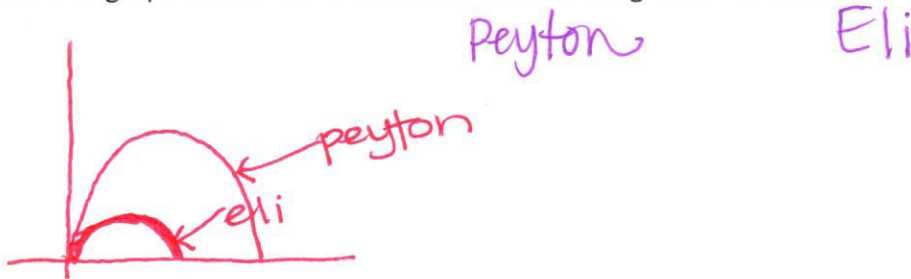 Peyton Eli
peyton
eli